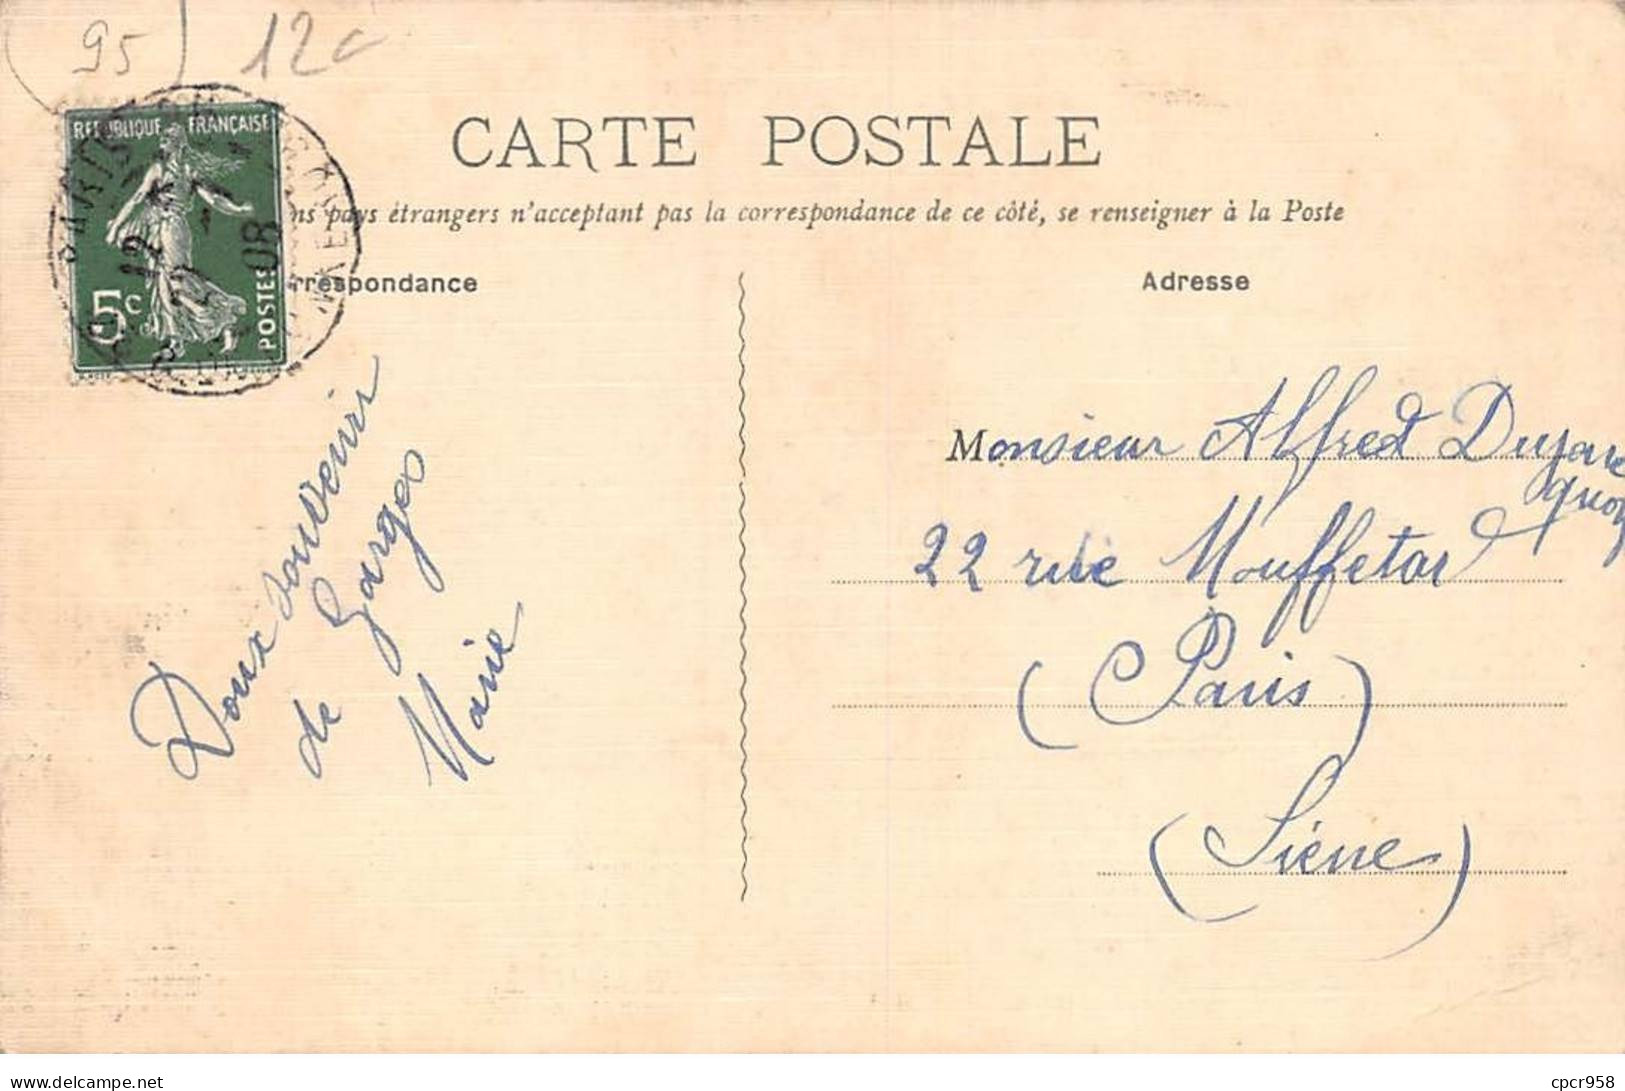 95 12c
RÉPUBLIQUE FRANÇAISE
5c POSTES
PARIS
12
22
08
CARTE POSTALE
ns pays étrangers n'acceptant pas la correspondance de ce côté, se renseigner à la Poste
rrespondance
Adresse
Doux souvenir
de Garges
Marie
Monsieur Alfred
22 rue Mouffetard
(Paris)
(Siene)
delcampe.net
cpcr958